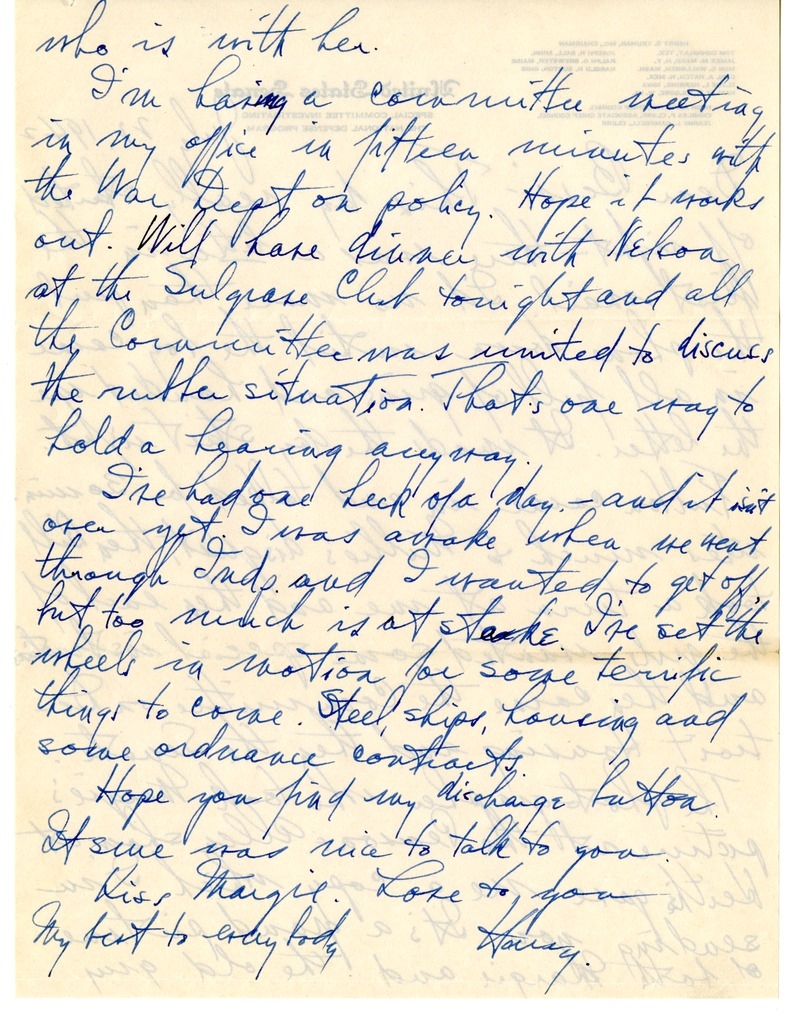 who is with her.
I'm having a committee meeting
in my office in fifteen minutes with
the War Dept on policy. Hope it works
out. Will have dinner with Nelson
at the Sulgrave Club tonight and all
the Committee was invited to discuss
the rubber situation. That's one way to
hold a hearing anyway.
I've had one heck of a day. - and it isn't
over yet. I was awake when we went
through Indp. and I wanted to get off,
but too much is at stake. I've set the
wheels in motion for some terrific
things to come. Steel, ships, housing and
some ordnance contracts.
Hope you find my discharge button.
It sure was nice to talk to you.
Kiss Margie. Love to you
My best to everybody Harry.